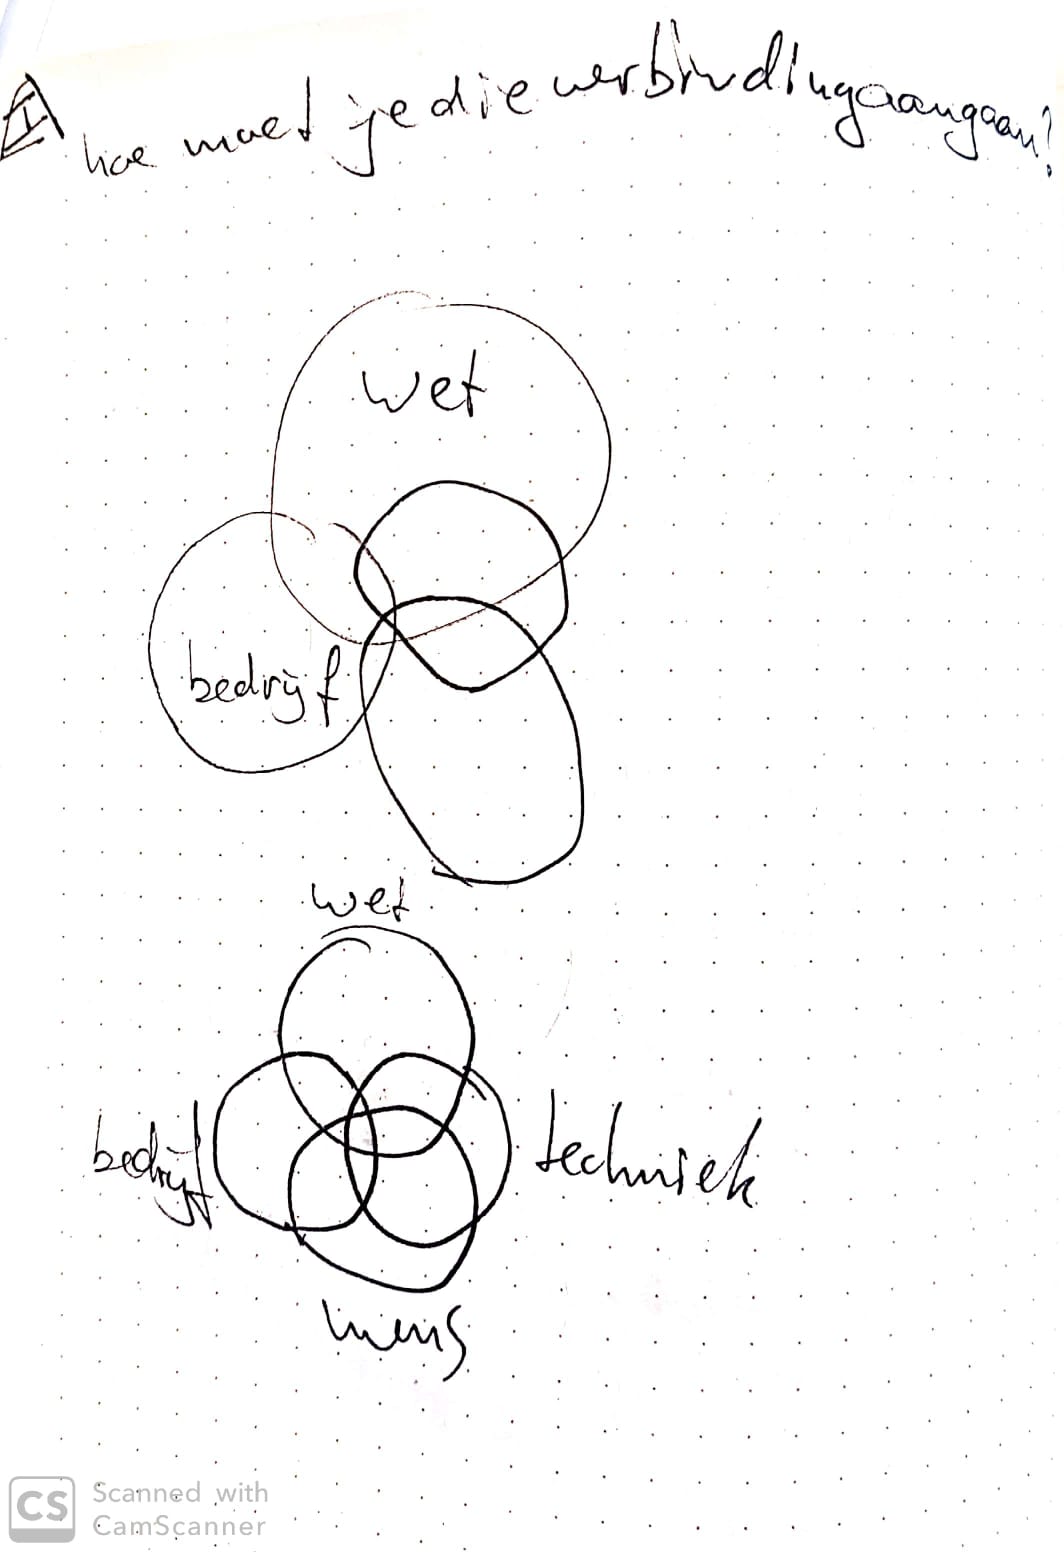 hoe moet je die verbinding aangaan?
wet
bedrijf
wet
bedrijf
techniek
mens
CS
Scanned with
CamScanner